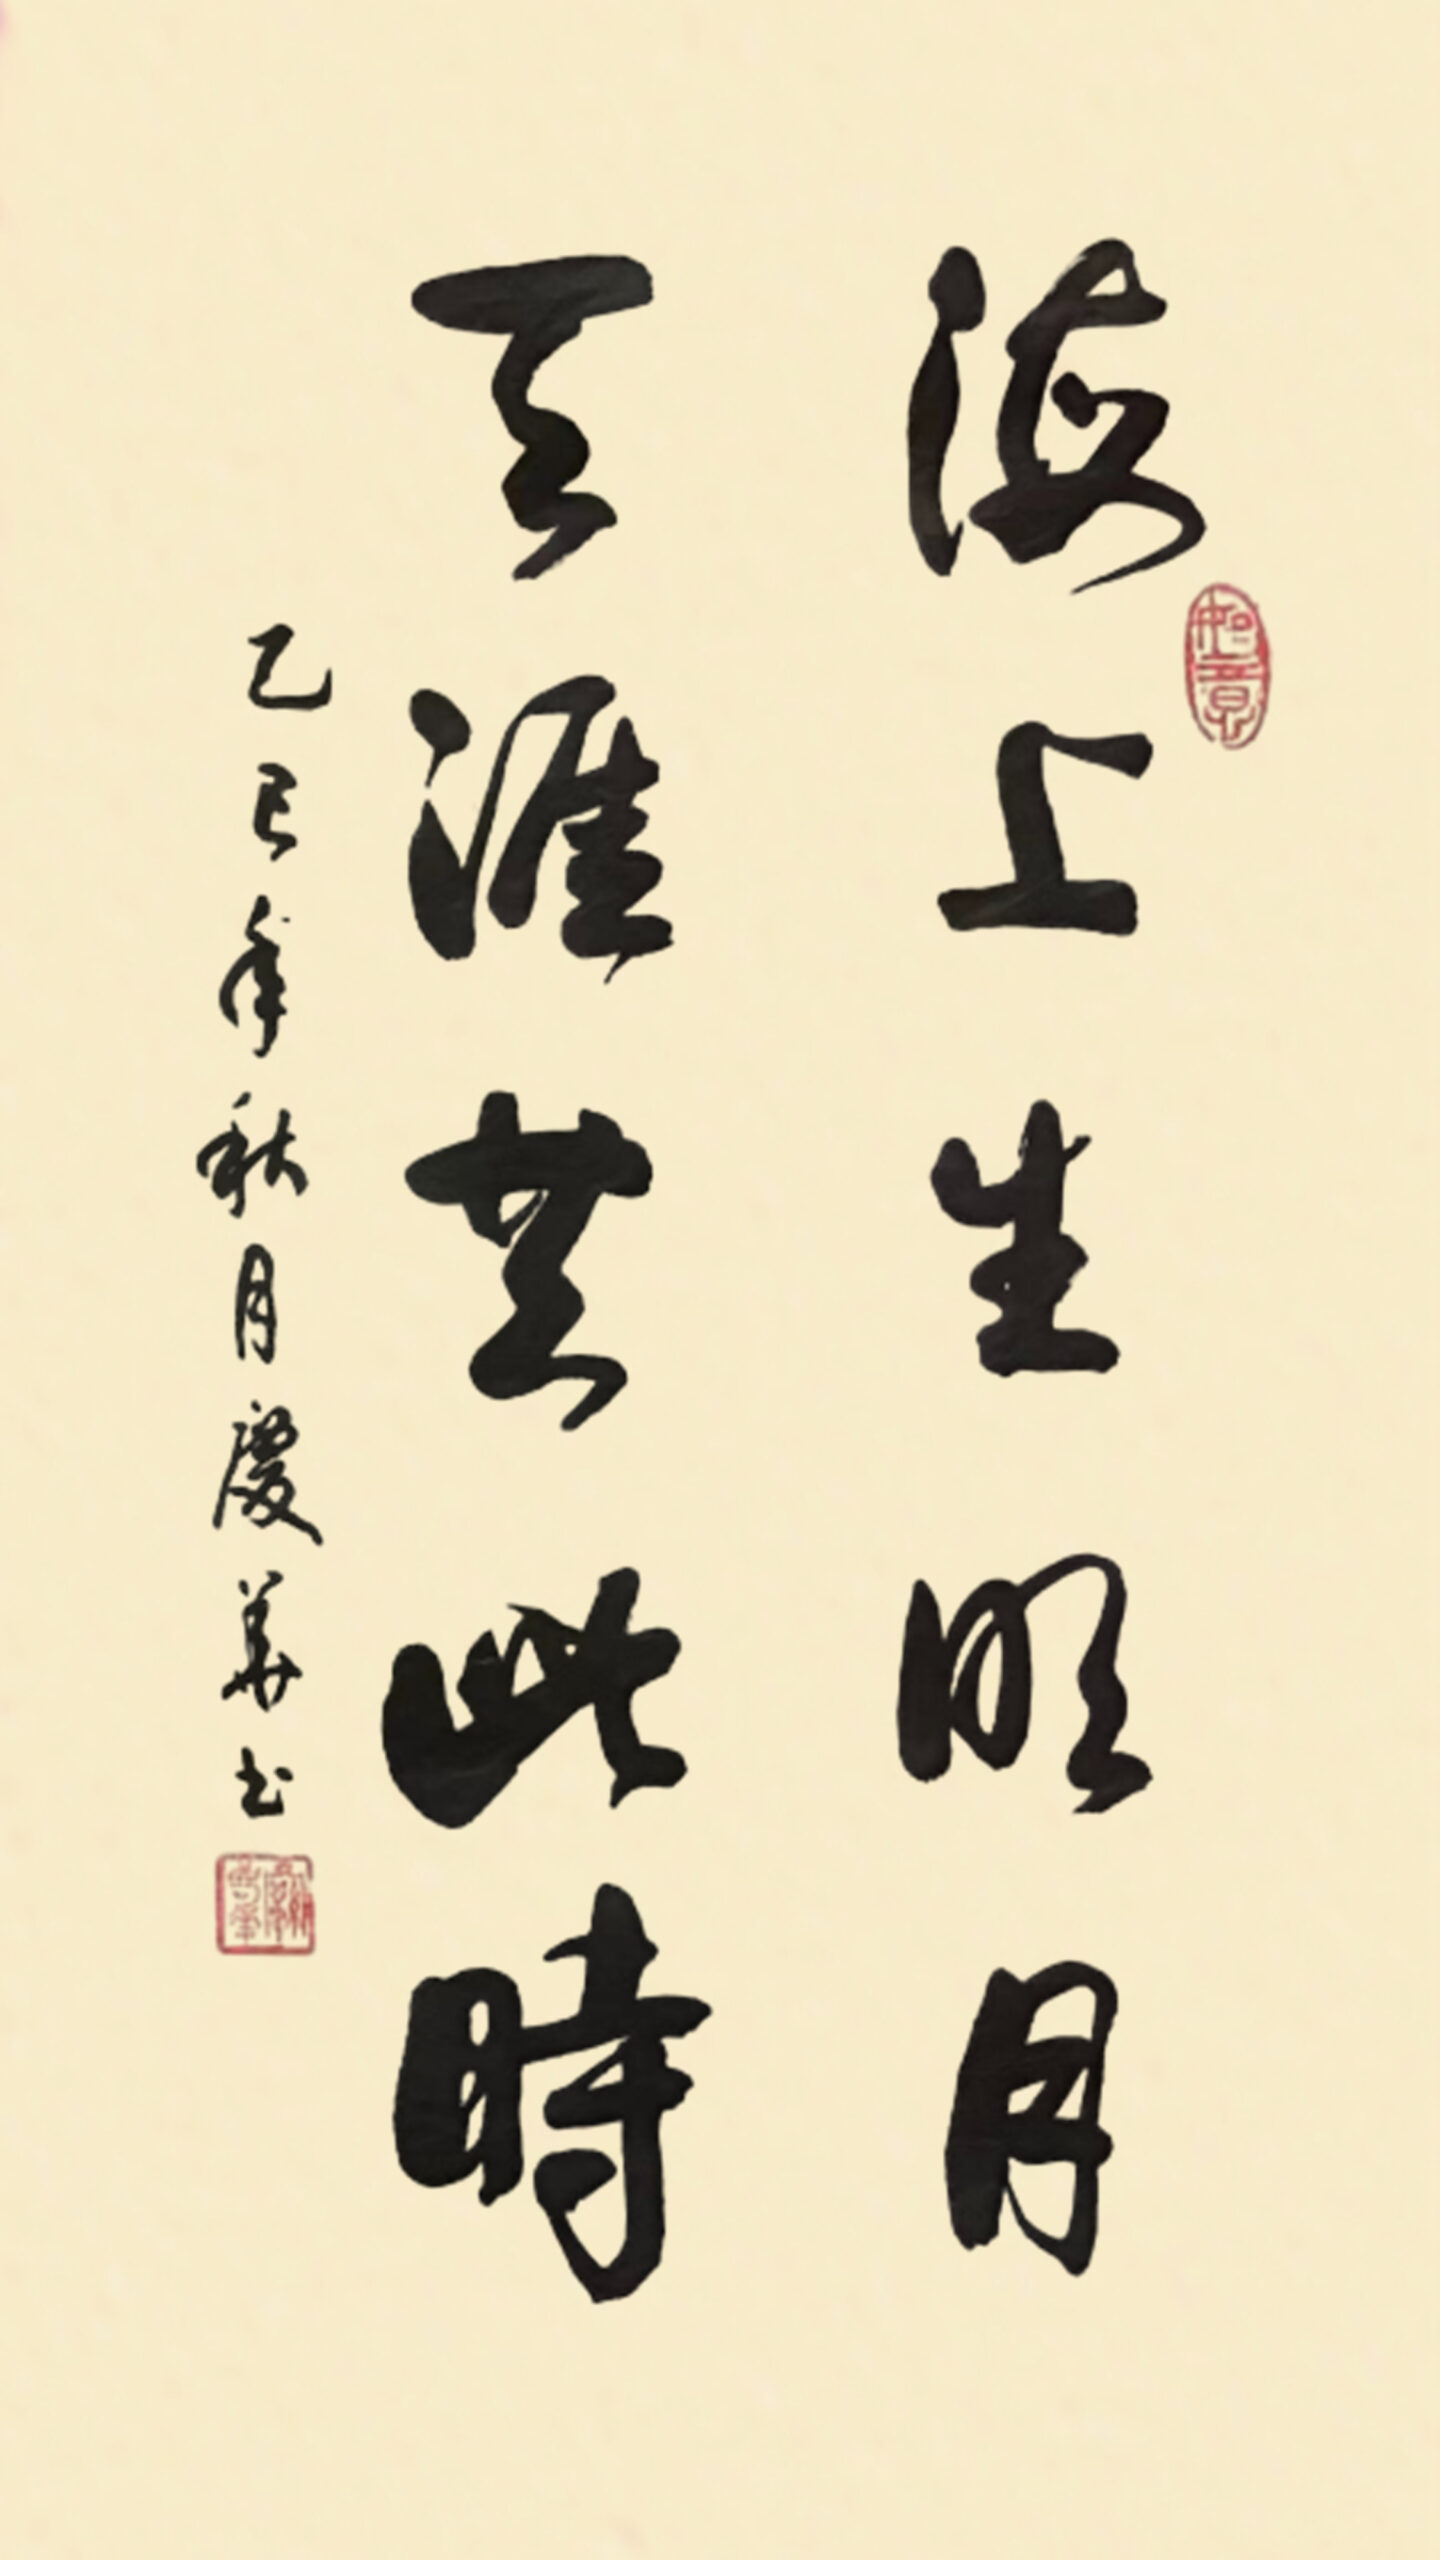 海上生明月
天涯共此時
乙巳年秋月慶華书
如意